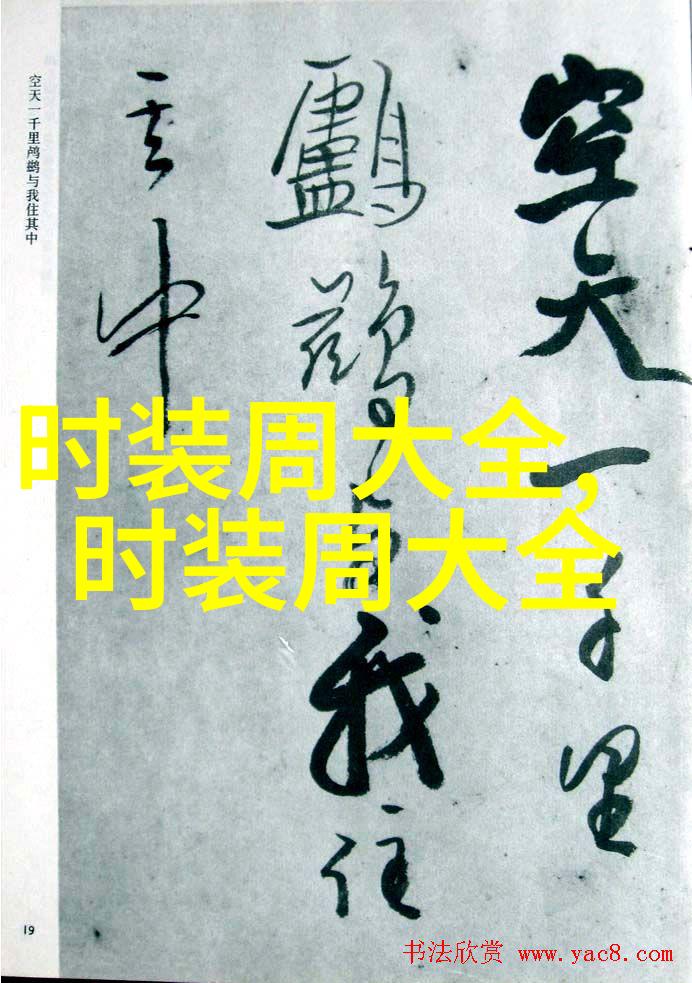 空天一千里
鸕鷀与我住
其中
空天一千里鸬鹚与我住其中
时装周大全,
时装周大全
19
书法欣赏 www.yac8.com